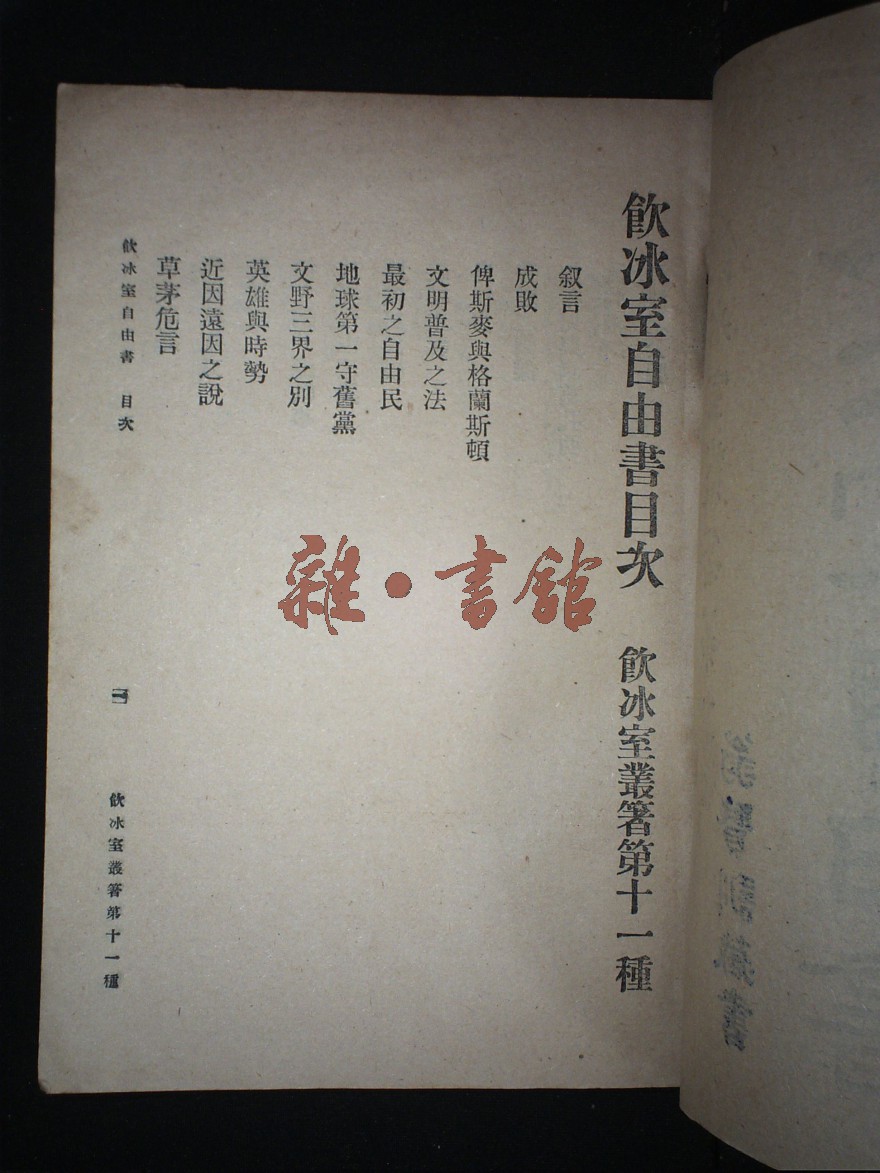 飮冰室自由書目次
飮冰室叢著第十一種
叙言
成敗
俾斯麥與格蘭斯頓
文明普及之法
最初之自由民
地球第一守舊黨
文野三界之別
英雄與時勢
近因遠因之說
草茅危言
飮冰室自由書 目次
飮冰室叢著第十一種
雜·書館